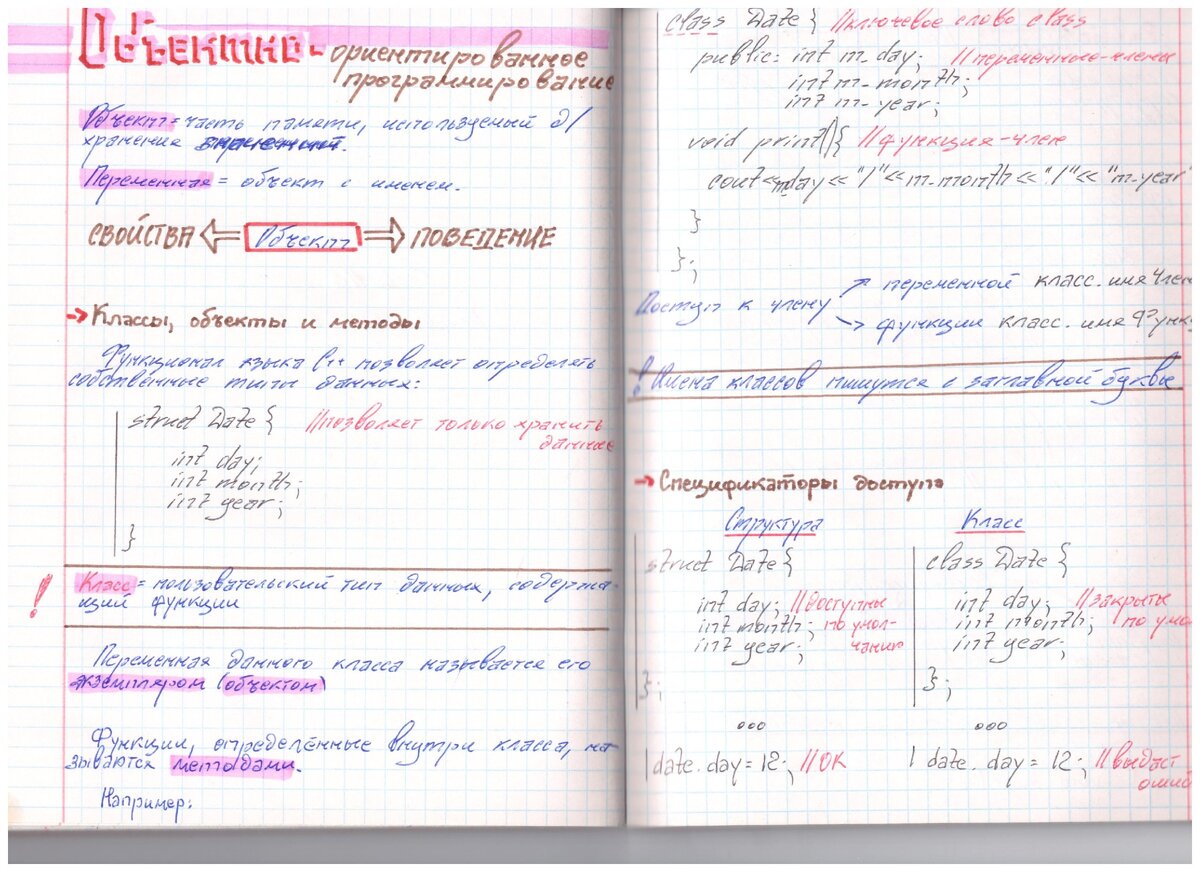 Объектно-ориентированное
программирование
Объект = часть памяти, используемый д/
хранение значений.
Переменная = объект с именем.
СВОЙСТВА ⇐ Объект ⇒ ПОВЕДЕНИЕ
→ Классы, объекты и методы
Функционал языка C++ позволяет определять
собственные типы данных:
struct Date { //позволяет только хранить
данные
int day;
int month;
int year;
}
! Класс = пользовательский тип данных, содержа-
щий функции
Переменная данного класса называется его
экземпляром (объектом)
Функции, определённые внутри класса, на-
зываются методами.
Например:
class Date { //ключевое слово class
public: int m_day; //переменные-члены
int m_month;
int m_year;
void print() { //функция-член
cout<<m_day<<"/"<<m_month<<"/"<<"m_year
}
};
Доступ к члену ↗ переменной класс.имяЧлен
↘ функции класс.имяФунк
! Имена классов пишутся с заглавной буквы
→ Спецификаторы доступа
Структура Класс
struct Date { class Date {
int day; //Доступны int day; //закрыты
int month; по умол- int month; по умол
int year; чанию int year;
}; };
ооо ооо
date.day = 12; //ОК date.day = 12; //выдаст
ошиб